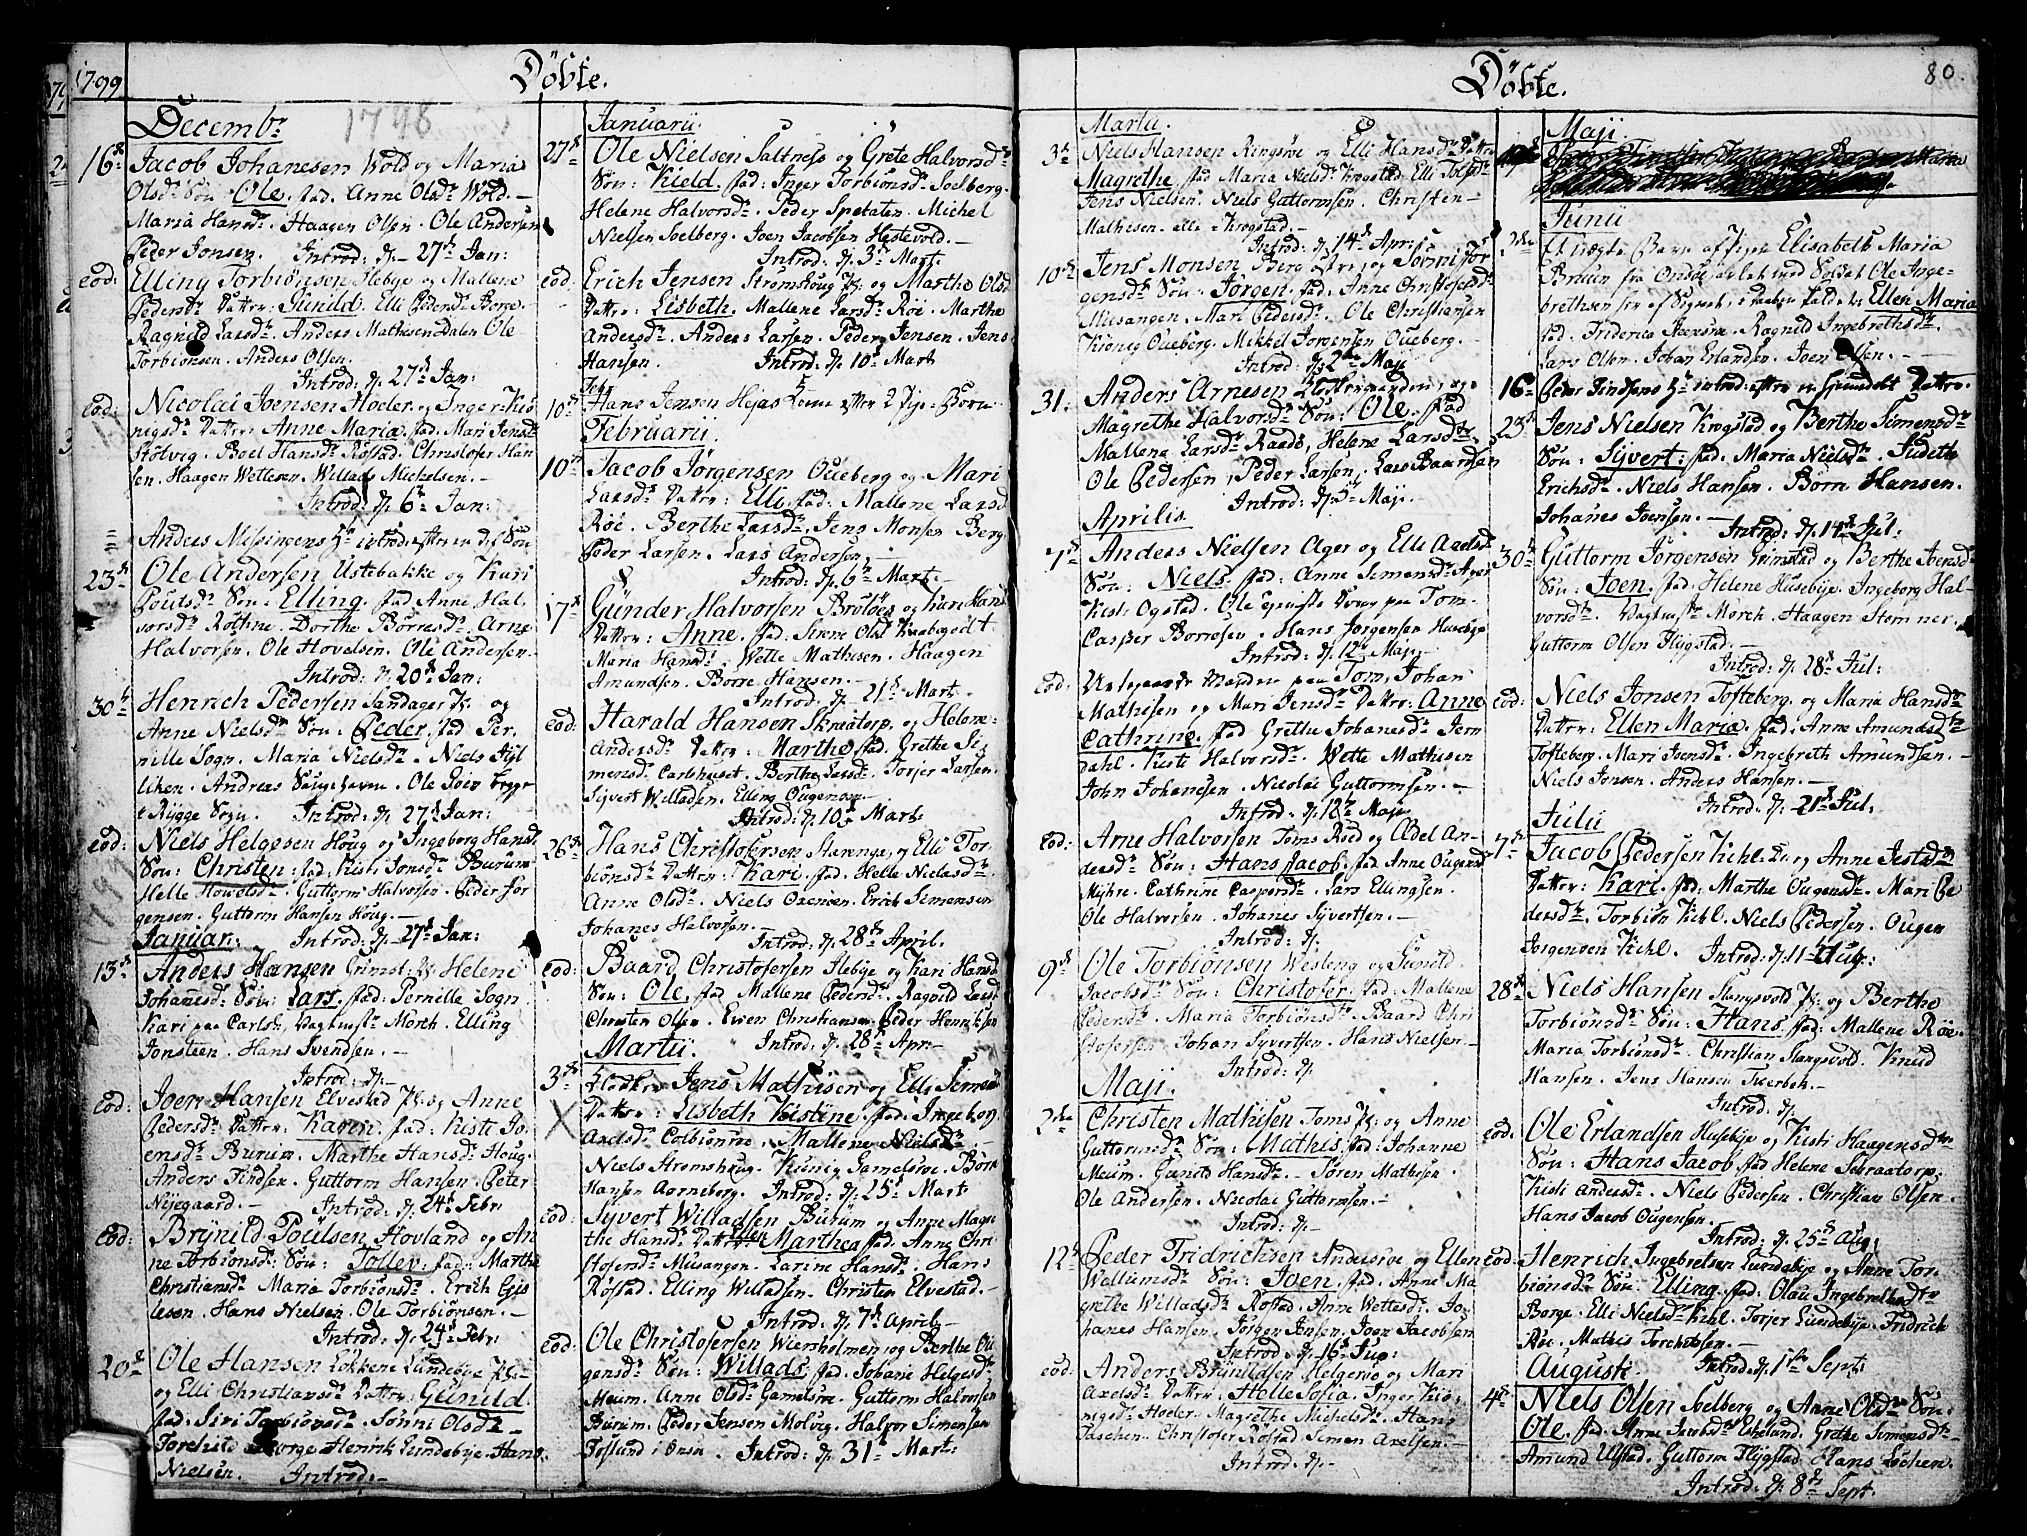 1799
Döbte.
Decembr
1798
16de Jacob Johanesen Wold og Maria
Olsdr Sön: Ole. fad. Anne Olsdr Wold.
Maria Hansdr. Haagen Olsen. Ole Andersen
Peder Jonsen. Introd: d. 27de Jan:
Eod: Elling Torbiönsen Ilebye og Mallene
Pedersdr Datter: Gunild. Elli Pedersdr Borge.
Ragnild Larsdr. Anders Mathisen Dalen Ole
Torbiönsen. Anders Olsen.
Introd: d. 27de Jan:
Eod: Nicolai Joensen Hoder og Inger Kiö
nigsdr Datter: Anne Maria. fad. Mari Jensdr
Stotvig. Boel Hansdr Rostad. Christofer Han
sen. Haagen Wettesen. Willads Michelsen.
Introd: d. 6te Jan:
Anders Missingens H. introd: efter en d.f. Sön
23de Ole Andersen Ustebakke og Kari
Poulsdr Sön: Elling. fad. Anne Hal
vorsdr Rothne. Dorthe Börresdr. Arne
Halvorsen. Ole Hovelsen. Ole Andersen.
Introd: d. 20de Jan:
30te Henrich Pedersen Sandager Pl. og
Anne Nielsdr Sön: Peder. fad Per
nille Sogn. Maria Nielsdr. Niels Kyl
liken. Andreas Saugehaven. Ole Joen
i Rygge Sogn. Introd: d. 27de Jan:
Eod: Niels Helgesen Houg og Ingeborg Hansdr
Sön: Christen. fad: Kisti Jonsdr Burum
Helle Hovelsdr. Guttorm Halvorsen. Peder Jor
gensen. Guttorm Hansen Houg.
Januar. Introd: d. 27de Jan:
13de Anders Hansen Grimst. Pl. Helene
Johanesdr Sön: Lars. fad: Pernille Sogn.
Kari paa Carlsh. Morch. Elling
Jonsteen. Hans Svendsen.
Introd: d.
Eod: Joen Hansen Elvestad Pl. og Anne
Pedersdr Datter: Karen. fad: Kisti Jo
ensdr Burum. Marthe Hansdr Houg.
Anders Findsen. Guttorm Hansen. Peter
Nyegaard. Introd: d. 24de Febr:
Eod: Brynild Poulsen Hovland og An
ne Torbiönsdr Sön: Tollev. fad: Marthe
Christiansdr Maria Torbiönsdr. Erich Gis
lesen. Hans Nielsen. Ole Torbiönsen.
Introd: d. 24de Febr:
20de Ole Hansen Lökkene Lundebye Pl.
og Elli Christiansdr Datter: Gunild.
fad: Siri Torbiönsdr. Sönni Olsdr
Torchild Borge. Henrik Lundebye. Hans
Nielsen. Introd:
Januarii.
27de Ole Nielsen Saltnæs og Grete Halvorsdr
Sön: Kield. fad: Inger Torbiönsdr Soelberg.
Helene Halvorsdr. Peder Spetalen. Michel
Nielsen Soelberg. Joen Jacobsen Hestevold.
Introd: d. 3de Mart.
Eod: Erich Jensen Stromshoug Pl. og Marthe Olsdr
Datter: Lisbeth. Mallene Larsdr Röe. Marthe
Andersdr. Anders Larsen. Peder Jensen. Jens
Hansen. Introd: d. 10de Mart
Febr
10de Hans Jensen Hejas Kone efter 2 Pige-Börn
Februarii.
10de Jacob Jörgensen Oueberg og Mari
Larsdr Datter: Elli. fad: Mallene Larsd
Röe. Berthe Larsdr. Jens Monsen Berg
Peder Larsen. Lars Andersen.
Introd: d. 6te Mart.
17de Gunder Halvorsen Bröloes og Kari Hans
Datter: Anne. fad: Sirene Olsd Knabegodt
Maria Hansdr. Wette Mathisen. Haagen
Amundsen. Borre Hansen.
Introd: d. 21de Mart.
Eod: Harald Hansen Skraatorp. og Helene
Andersdr Datter: Marthe. fad. Grethe Si
mensdr Carlshuset. Berthe Larsdr. Torjer Larsen.
Sivert Willadsen. Elling Ougensen.
Introd: d. 10de Mart
26de Hans Christofersen Starenge, og Elli Tor
biönsdr Datter: Kari. fad. Helle Nielsdr.
Anne Olsdr. Niels Oxenöen. Erich Simensen
Johanes Halvorsen.
Introd: d. 28de April.
Eod: Baard Christofersen Ilebye og Kari Hansd
Sön: Ole. fad Mallene Pedersdr. Ragnild Larsd
Christen Olsen. Even Christiansen. Peder Henriksen
Martii. Introd: d. 28de Apr:
3de Jens Mathisen og Elli Simensd
Datter: Lisbeth Kistine. fad. Ingeborg
Axelsdr Colbiönröe. Mallene Nielsdr.
Niels Stromshoug. König Gamelsröe. Börn
Hansen Aarneberg. Introd: d. 25de Mart
Eod: Syvert Willadsen Burum og Anne Magre
the Hansdr Datter: Ellen Marthea. fad. Anne Chri
stofersdr Musangen. Larine Hansdr. Hans
Rostad. Elling Willadsen. Christen Elvestad.
Introd: d. 7de April
Eod: Ole Christofersen Wiersholmen og Berthe Ou
gensdr Sön: Willads. fad. Johane Helgesdr
Meum. Anne Olsdr Gamelsröe. Guttorm Halvorsen
Burum. Peder Jensen Molvig. Halvor Simensen
Foslund i Onsø. Introd: d. 31te Mart:
Döbte.
80.
Martii.
3de Niels Hansen Ringsröe og Elli Hansdr Datter
Magrethe. fad Maria Nielsdr Krogstad. Elli Tofsdr
Jens Nielsen. Niels Guttormsen. Christen
Mathisen. alle Krogstad.
Introd: d. 14de Apr:
10de Jens Monsen Berg og Sönni Jör
gensdr Sön: Jörgen. fad: Anne Christofersdr
Musangen. Mari Pedersdr. Ole Christiansen
Könnig Oueberg. Mikkel Jorgensen Oueberg.
Introd: d. 2den Maji
31. Anders Arnesen, og
Magrethe Halvorsdr Sön: Ole. fad
Mallene Larsdr Raade. Helene Larsdr.
Ole Pedersen. Peder Larsen. Lars Baardsen
Introd: d. 5te Maji.
Aprilis
7de Anders Nielsen Ager og Elli Axelsd
Sön: Niels. fad: Anne Simensdr Ager
Kisti Ogstad. Ole paa Tom.
Casper Borresen. Hans Jorgensen Husebye
Introd: d. 12te Maji
Eod: Manden paa Tom, Johan
Mathisen og Mari Jensdr Datter: Anne
Cathrine. fad Grethe Johanesdr Jern
dahl. Kisti Halvorsdr. Wette Mathisen
John Johanesen. Nicolai Guttormsen.
Introd: d. 12te Maji
Eod: Arne Halvorsen Toms Roed og Adel An
dersdr Sön: Hans Jacob. fad. Anne Ougensdr
Mykre. Cathrine Caspersdr. Lars Ellingsen.
Ole Halvorsen. Johanes Syvertsen.
Introd: d.
9de Ole Torbiönsen Wesleng og Gunild
Jacobsdr Sön: Christofer. fad: Mallene
Pedersdr. Maria Torbiönsdr. Baard Chri
stofersen. Johan Syvertsen. Hans Nielsen
Introd: d.
Maji.
2den Christen Mathisen Toms Pl. og Anne
Guttormsdr Sön: Mathis. fad: Johanne
Meum. Gunild Hansdr. Sören Mathisen
Ole Andersen. Nicolai Guttormsen.
Introd: d.
12te Peder Fridrichsen Andersröe og Ellen
Wellumsdr Sön: Joen. fad. Anne Ma
grethe Willadsdr Rostad. Anne Wettesdr. Jo
hanes Hansen. Jörgen Jensen. Joen Jacobsen
Introd: d. 16de Jun:
Eod: Anders Brynildsen Helgerøe og Mari
Axelsdr Datter: Helle Sofia. Inger Kiö
nigsdr Hoder. Magrethe Michelsdr. Hans
Taschen. Christofer Rostad. Simen Axelsen.
Introd: d.
Maji.
Junii
2den Et uægte Barn af Pigen Elisabeth Maria
Bruun fra Onsøe og Soldat Ole Inge-
brethsen i Daaben kaldet: Ellen Maria
fad. Friderica. Ragnild Ingebrethsdr.
Lars Olsen. Johan Erlandsen. Joen Olsen.
16de Peder Findsens H. introd: efter en Datter.
23de Jens Nielsen Krogstad og Berthe Simensdr
Sön: Syvert. fad. Maria Nielsdr. Judith
Erichsdr. Niels Hansen. Börn Hansen.
Johanes Joensen. Introd: d. 14de Jul:
30te Guttorm Jorgensen Grimstad og Berthe Joensdr
Sön: Joen. fad. Helene Husebye. Ingeborg Hal
vorsdr. Morch. Haagen Stomner.
Guttorm Olsen Flygstad.
Introd: d. 28de Jul:
Eod: Niels Jonsen Tofteberg. og Maria Hansdr
Datter: Ellen Maria. fad. Anne Amundsdr
Tofteberg. Mari Joensdr. Ingebreth Amundsen.
Niels Jonsen. Anders Hansen.
Introd: d. 21de Jul:
Julii
7de Jacob Pedersen Kihl. og Anne
Datter: Kari. fad: Marthe Ougensdr. Mari Pe
dersdr. Torbiön Kihl. Niels Pedersen. Ougen
Jorgensen Kihl. Introd: d. 11te Aug:
28de Niels Hansen Slangsvold Pl. og Berthe
Torbiönsdr Sön: Hans. fad: Mallene Röe.
Maria Torbiönsdr. Christian Slangsvold. Knud
Hansen. Jens Hansen Tverbek.
Introd: d.
Eod: Ole Erlandsen Husebye og Kisti Haagensdr
Sön: Hans Jacob. fad Helene Schraatorp.
Kisti Andersdr. Niels Pedersen. Christian Olsen.
Hans Jacob Ougensen.
Introd: d. 25de Aug:
Eod: Henrich Ingebretsen Lundebye og Anne Tor
biönsdr Sön: Elling. fad: Olau Ingebrethsdr
Borge. Elli Nielsdr Kihl. Torjer Lundebye. Fridrich
Röe. Mathis Torchildsen.
Augusti. Introd: d. 1ste Sept:
4de Niels Olsen Soelberg og Anne Olsdr Sön:
Ole. fad. Anne Jacobsdr Eskelund. Grethe Simensdr
Amund Ulstad. Guttorm Flygstad. Hans Lochen.
Introd: d. 8de Sept.